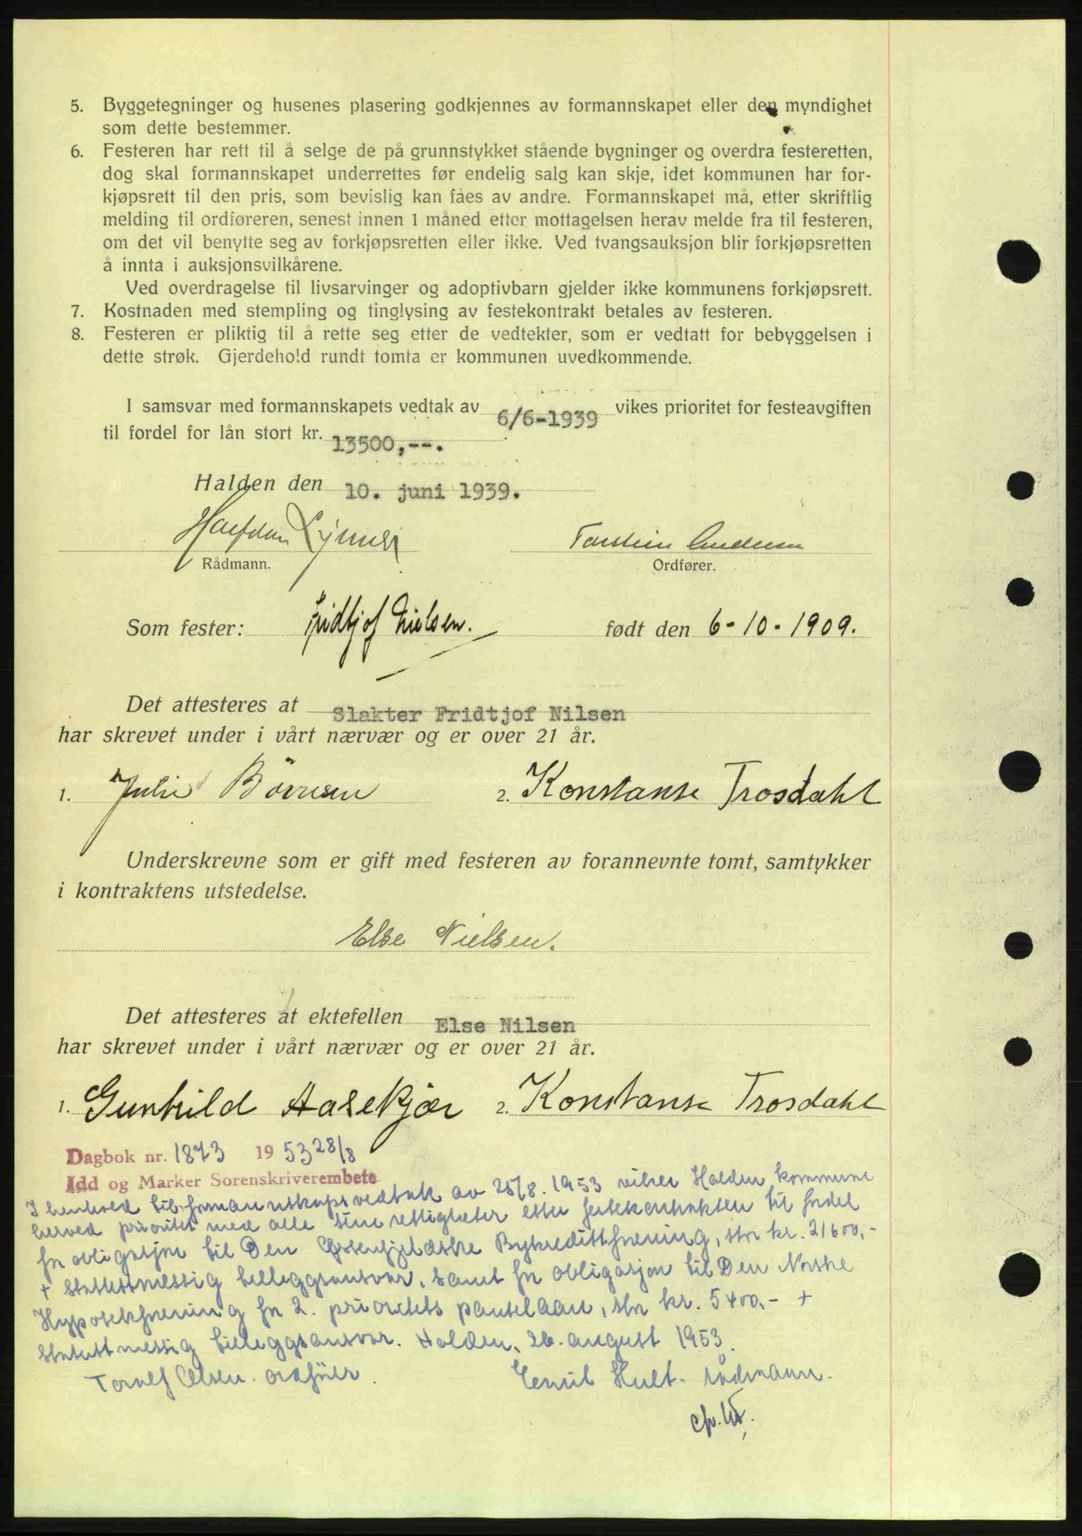 5. Byggetegninger og husenes plasering godkjennes av formannskapet eller den myndighet
som dette bestemmer.
6. Festeren har rett til å selge de på grunnstykket stående bygninger og overdra festeretten,
dog skal formannskapet underrettes før endelig salg kan skje, idet kommunen har for-
kjøpsrett til den pris, som bevislig kan fåes av andre. Formannskapet må, etter skriftlig
melding til ordføreren, senest innen 1 måned etter mottagelsen herav melde fra til festeren,
om det vil benytte seg av forkjøpsretten eller ikke. Ved tvangsauksjon blir forkjøpsretten
å innta i auksjonsvilkårene.
Ved overdragelse til livsarvinger og adoptivbarn gjelder ikke kommunens forkjøpsrett.
7. Kostnaden med stempling og tinglysing av festekontrakt betales av festeren.
8. Festeren er pliktig til å rette seg etter de vedtekter, som er vedtatt for bebyggelsen i
dette strøk. Gjerdehold rundt tomta er kommunen uvedkommende.
I samsvar med formannskapets vedtak av 6/6-1939 vikes prioritet for festeavgiften
til fordel for lån stort kr. 13500,--.
Halden den 10. juni 1939.
Halfdan
Rådmann.
Ordfører.
Som fester: Fridtjof Nielsen. født den 6-10-1909.
Det attesteres at Slakter Fridtjof Nilsen
har skrevet under i vårt nærvær og er over 21 år.
1. Julie Børresen 2. Konstanse Trosdahl
Underskrevne som er gift med festeren av forannevnte tomt, samtykker
i kontraktens utstedelse.
Else Nielsen.
Det attesteres at ektefellen Else Nilsen
har skrevet under i vårt nærvær og er over 21 år.
1. Gunhild Aasekjær 2. Konstanse Trosdahl
Dagbok nr. 1873 1953 28/8
Idd og Marker Sorenskriverembete
I henhold til formannskapsvedtak av 25/8. 1953 viker Halden kommune
herved prioritet med alle sine rettigheter etter festekontrakten til fordel
for obligasjon til Den Østenfjeldske Bykredittforening, stor kr. 21600,-
+ statuttmessig tilleggsansvar, samt for obligasjon til Den Norske
Hypotekforening for 2. prioritets pantelaan, stor kr. 5400,- +
statuttmessig tilleggsansvar. Halden, 26. august 1953.
Torolf Olsen. ordfører. Emil Hult. rådmann.